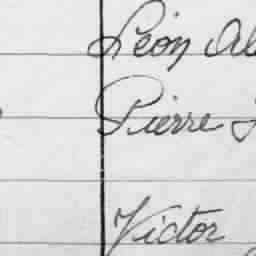 Léon Al
Pierre
Victor